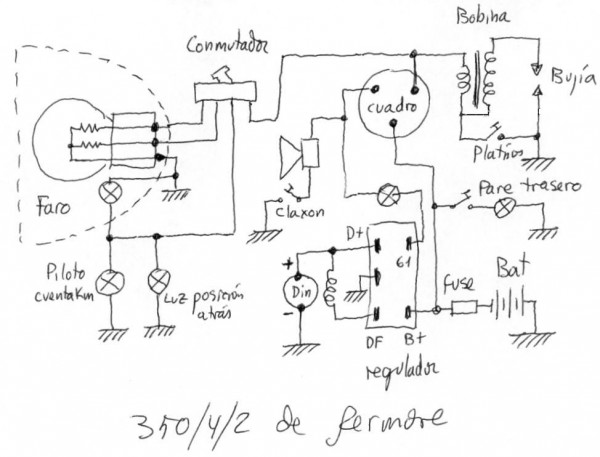 Bobina
Conmutador
cuadro
Bujía
Platinos
Faro
claxon
Pare trasero
Piloto
cuentaKm
Luz posición
atrás
D+
61
+
Din
-
DF
B+
Fuse
Bat
regulador
350/4/2 de